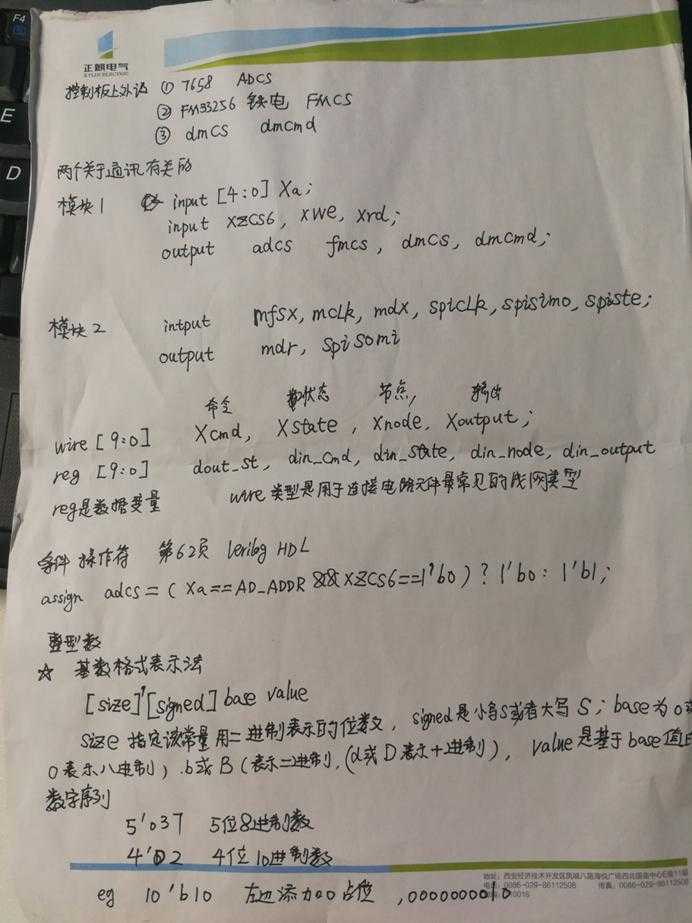 F4
E
D
正麒电气
控制板上外设 ① 7658 ADCS
② FM33256 铁电 FMCS
③ dmcs dmcmd
两个关于通讯有关的
模块1 input [4:0] Xa;
input XZCS6, xwe, xrd;
output adcs fmcs, dmcs, dmcmd;
模块2 intput mfsx, mclk, mdx, spiclk, spisimo, spiste;
output mdr, spisomi
命令 状态 节点, 输出
wire [9:0] Xcmd, Xstate, Xnode, Xoutput;
reg [9:0] dout_st, din_cmd, din_state, din_node, din_output
reg是数据变量 wire 类型是用于连接电路元件最常见的线网类型
条件 操作符 第62页 Verilog HDL
assign adcs=(Xa==AD_ADDR &&XZCS6==1'b0)? 1'b0: 1'b1;
整型数
☆ 基数格式表示法
[size]'[signed] base value
size 指定该常量用二进制表示的位数, signed是小写s或者大写S; base为o或
O表示八进制), b或B(表示二进制, (d或D表示十进制), value是基于base值的
数字序列
5'o37 5位8进制数
4'D2 4位10进制数
eg 10'b10 左边添加0占位, 0000000010
地址: 西安经济技术开发区凤城八路海悦广场西北国金中心E座11层
电话: 0086-029-86112508 传真: 0086-029-86112508